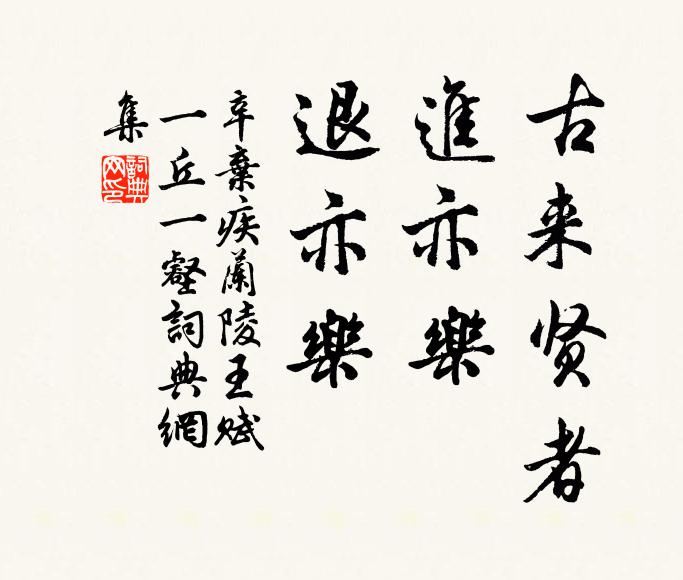 古来贤者
進亦樂
退亦樂
辛棄疾蘭陵王賦
一丘一壑詞典網
集
詞典网印